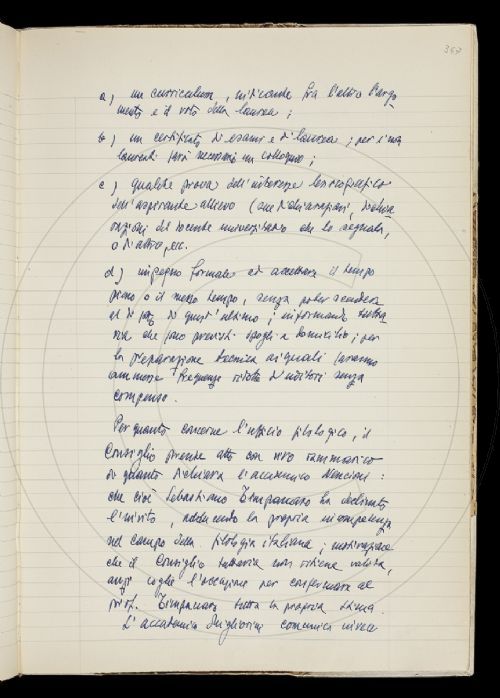 367
a) un curriculum, indicando fra l'altro l'argo
mento e il voto della laurea;
b) un certificato di esami e di laurea; per i non
laureati sarà necessario un colloquio;
c) qualche prova dell'interesse lessicografico
dell'aspirante allievo (anche dichiarazioni,
del docente universitario che lo segnala,
o di altri, ecc.
d) impegno formale ad accettare il tempo
pieno o il mezzo tempo, senza poter scendere
al di sotto di quest'ultimo; informando tutta
via che sono previsti spogli a domicilio; per
la preparazione tecnica ai quali saranno
ammesse frequenze ridotte d'uditori senza
compenso.
Per quanto concerne l'ufficio filologico, il
Consiglio prende atto con vivo rammarico
di quanto dichiara l'accademico Nencioni:
che cioè Sebastiano Timpanaro ha declinato
l'invito, adducendo la propria incompetenza
nel campo della filologia italiana; motivazione
che il Consiglio tuttavia non ritiene valida,
anzi coglie l'occasione per confermare al
prof. Timpanaro tutta la propria stima.
L'accademico Migliorini comunica invece